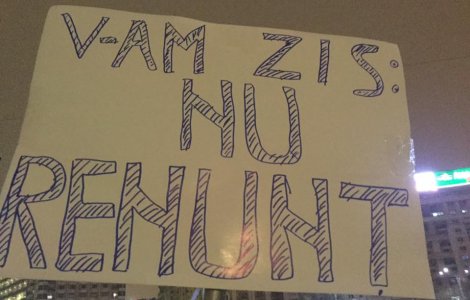 V-AM ZIS:
NU
RENUNȚ